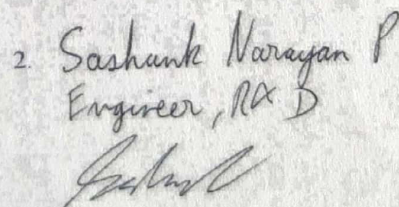 2. Sashank Narayan P
Engineer, R&D